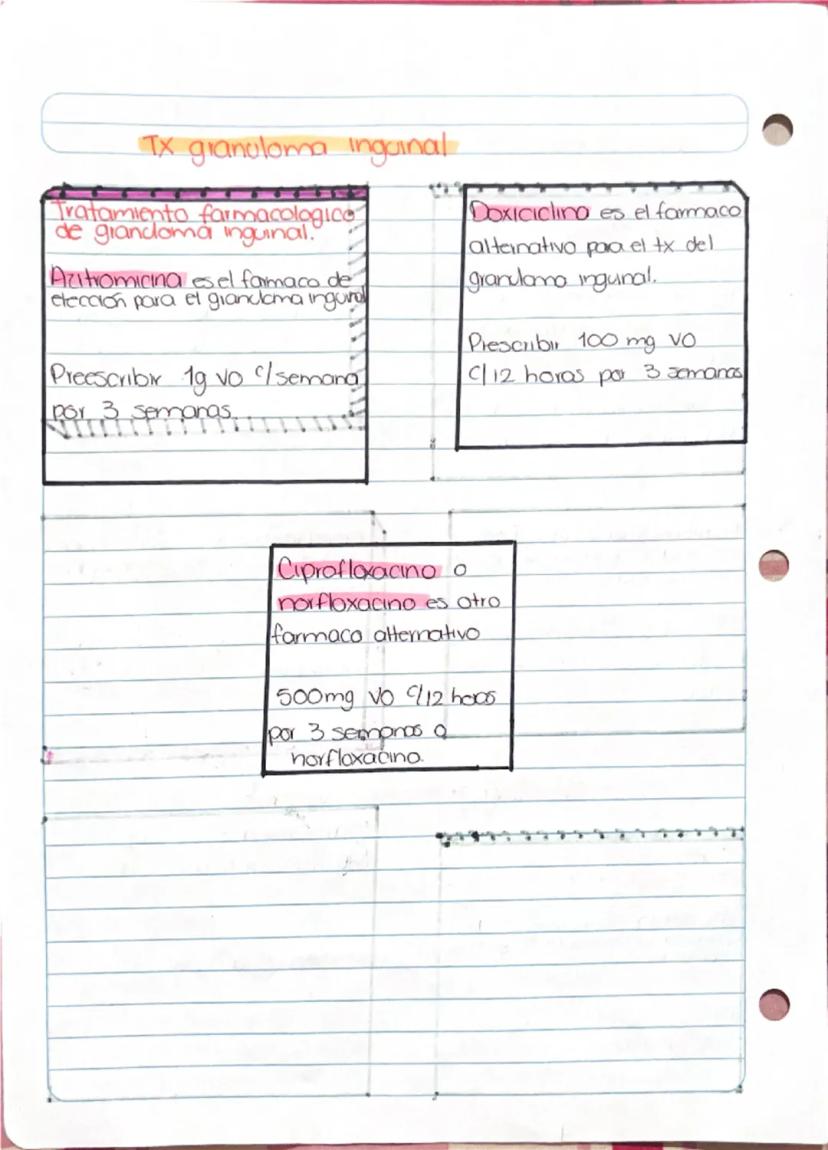 Tx granuloma inguinal
Tratamiento farmacologico
de granuloma inguinal.
Azitromicina es el farmaco de
elección para el granuloma inguinal
Preescribir 1g VO c/semana
por 3 semanas.
Doxiciclina es el farmaco
alternativo para el tx del
granuloma inguinal.
Prescribir 100 mg VO
c/12 horas por 3 semanas
Ciprofloxacino o
norfloxacino es otro
farmaco alternativo
500mg VO c/12 horas
por 3 semanas o
norfloxacino.